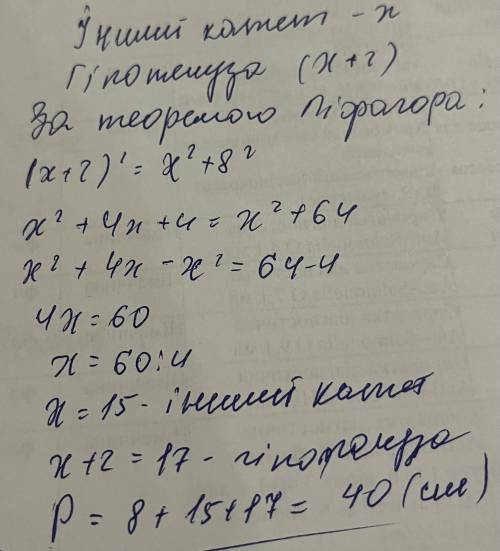 Інший катет - x
Гіпотенуза (x+2)
За теоремою Піфагора:
(x+2)² = x²+8²
x² + 4x + 4 = x² + 64
x² + 4x - x² = 64-4
4x = 60
x = 60:4
x = 15 - інший катет
x+2 = 17 - гіпотенуза
P = 8 + 15 + 17 = 40 (см)